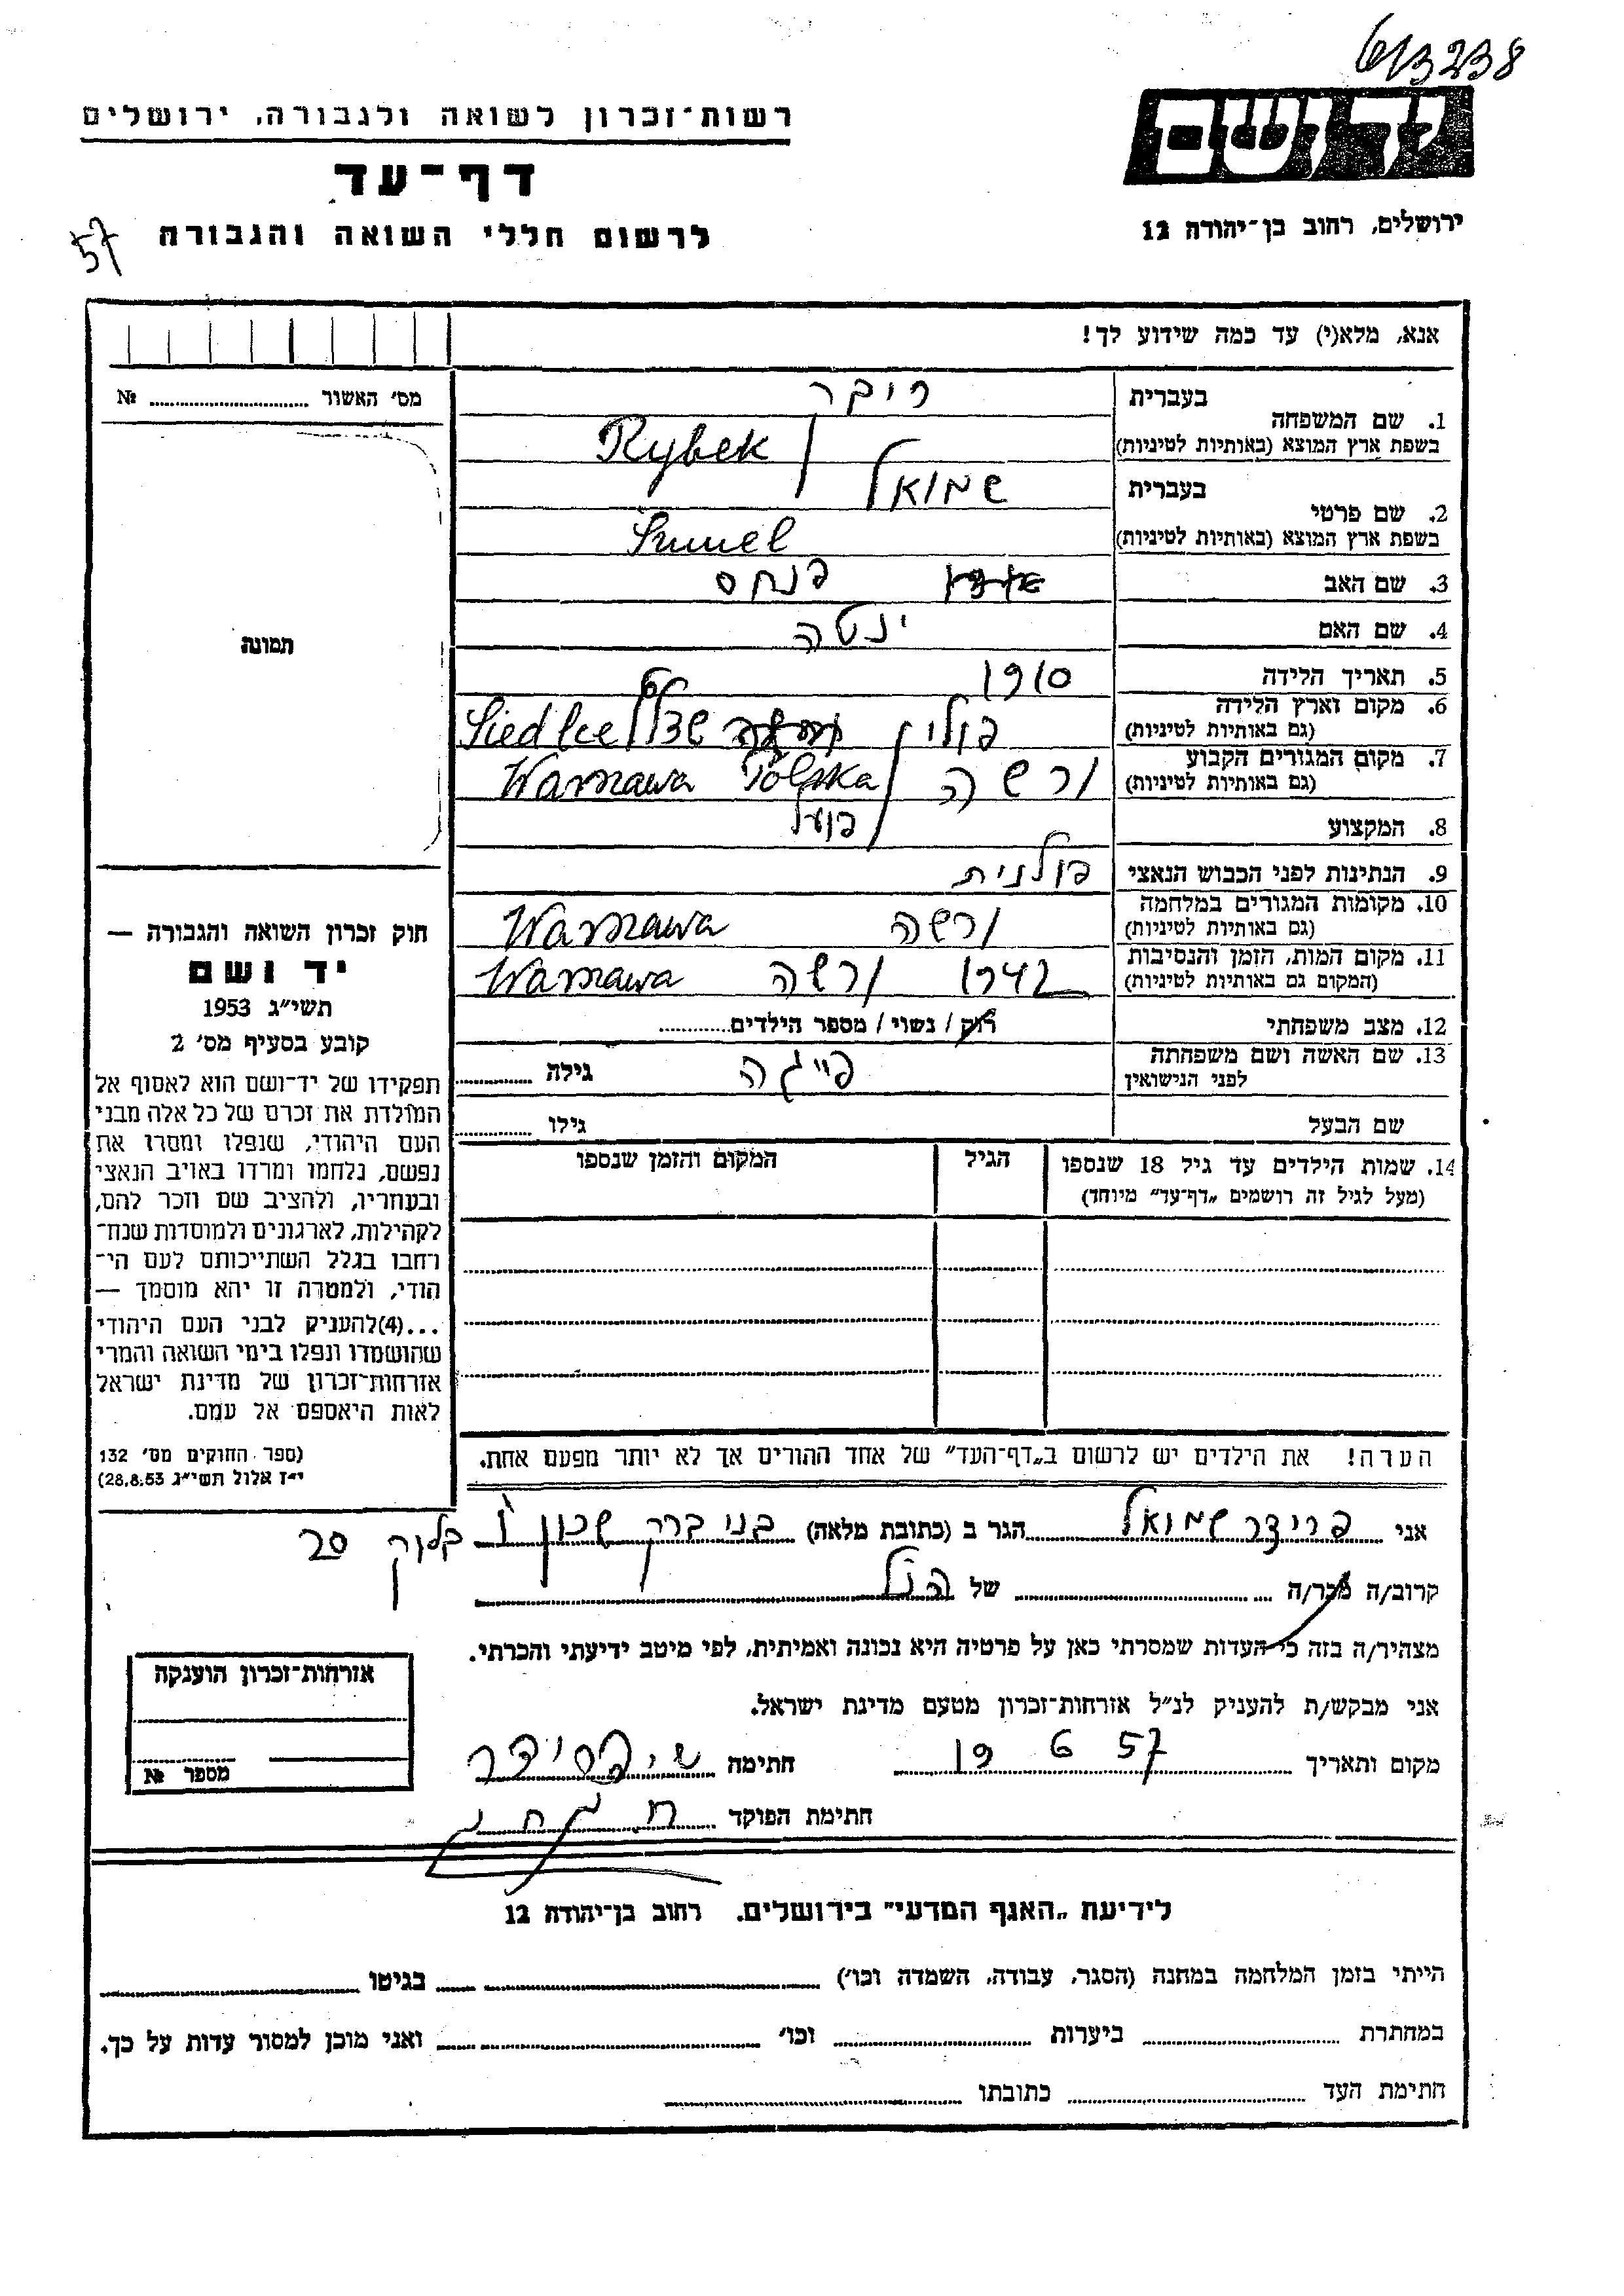 613238
יד ושם
ירושלים, רחוב בן־יהודה 12
רשות־זכרון לשואה ולגבורה, ירושלים
דף־עד
לרשום חללי השואה והגבורה
57
אנא, מלא(י) עד כמה שידוע לך!
מס׳ האשור № 
תמונה
חוק זכרון השואה והגבורה —
יד ושם
תשי״ג 1953
קובע בסעיף מס׳ 2
תפקידו של יד־ושם הוא לאסוף אל
המולדת את זכרם של כל אלה מבני
העם היהודי, שנפלו ומסרו את
נפשם, נלחמו ומרדו באויב הנאצי
ובעוזריו, ולהציב שם וזכר להם,
לקהילות, לארגונים ולמוסדות שנח־
רבו בגלל השתייכותם לעם הי־
הודי, ולמטרה זו יהא מוסמך —
...(4)להעניק לבני העם היהודי
שהושמדו ונפלו בימי השואה והמרי
אזרחות־זכרון של מדינת ישראל
לאות היאספם אל עמם.
(ספר החוקים מס׳ 132
י״ז אלול תשי״ג 28.8.53)
1. שם המשפחה בעברית
בשפת ארץ המוצא (באותיות לטיניות) Rybek
2. שם פרטי בעברית שמואל
בשפת ארץ המוצא (באותיות לטיניות)
3. שם האב פנחס
4. שם האם ינטה
5. תאריך הלידה 1910
6. מקום וארץ הלידה פולין Siedlce
(גם באותיות לטיניות)
7. מקום המגורים הקבוע ורשה Warszawa Polska
(גם באותיות לטיניות)
8. המקצוע פועל
9. הנתינות לפני הכבוש הנאצי פולנית
10. מקומות המגורים במלחמה ורשה Warszawa
(גם באותיות לטיניות)
11. מקום המות, הזמן והנסיבות 1942 ורשה Warszawa
(המקום גם באותיות לטיניות)
12. מצב משפחתי רוק / נשוי / מספר הילדים
13. שם האשה ושם משפחתה פייגה גילה
לפני הנישואין
שם הבעל גילו
14. שמות הילדים עד גיל 18 שנספו הגיל המקום והזמן שנספו
(מעל לגיל זה רושמים „דף־עד״ מיוחד)
הערה! את הילדים יש לרשום ב„דף־העד״ של אחד ההורים אך לא יותר מפעם אחת.
אני פרידר שמואל הגר ב (כתובת מלאה) בני ברק שכון ו׳ בלוק 20
קרוב/ה מכר/ה של הנ״ל
מצהיר/ה בזה כי העדות שמסרתי כאן על פרטיה היא נכונה ואמיתית, לפי מיטב ידיעתי והכרתי.
אני מבקש/ת להעניק לנ״ל אזרחות־זכרון מטעם מדינת ישראל.
מקום ותאריך 19 6 57 חתימה
חתימת הפוקד
אזרחות־זכרון הוענקה
מספר №
לידיעת „האגף המדעי״ בירושלים. רחוב בן־יהודה 12
הייתי בזמן המלחמה במחנה (הסגר, עבודה, השמדה וכו׳) בגיטו
במחתרת ביערות וכו׳ ואני מוכן למסור עדות על כך.
חתימת העד כתובתו